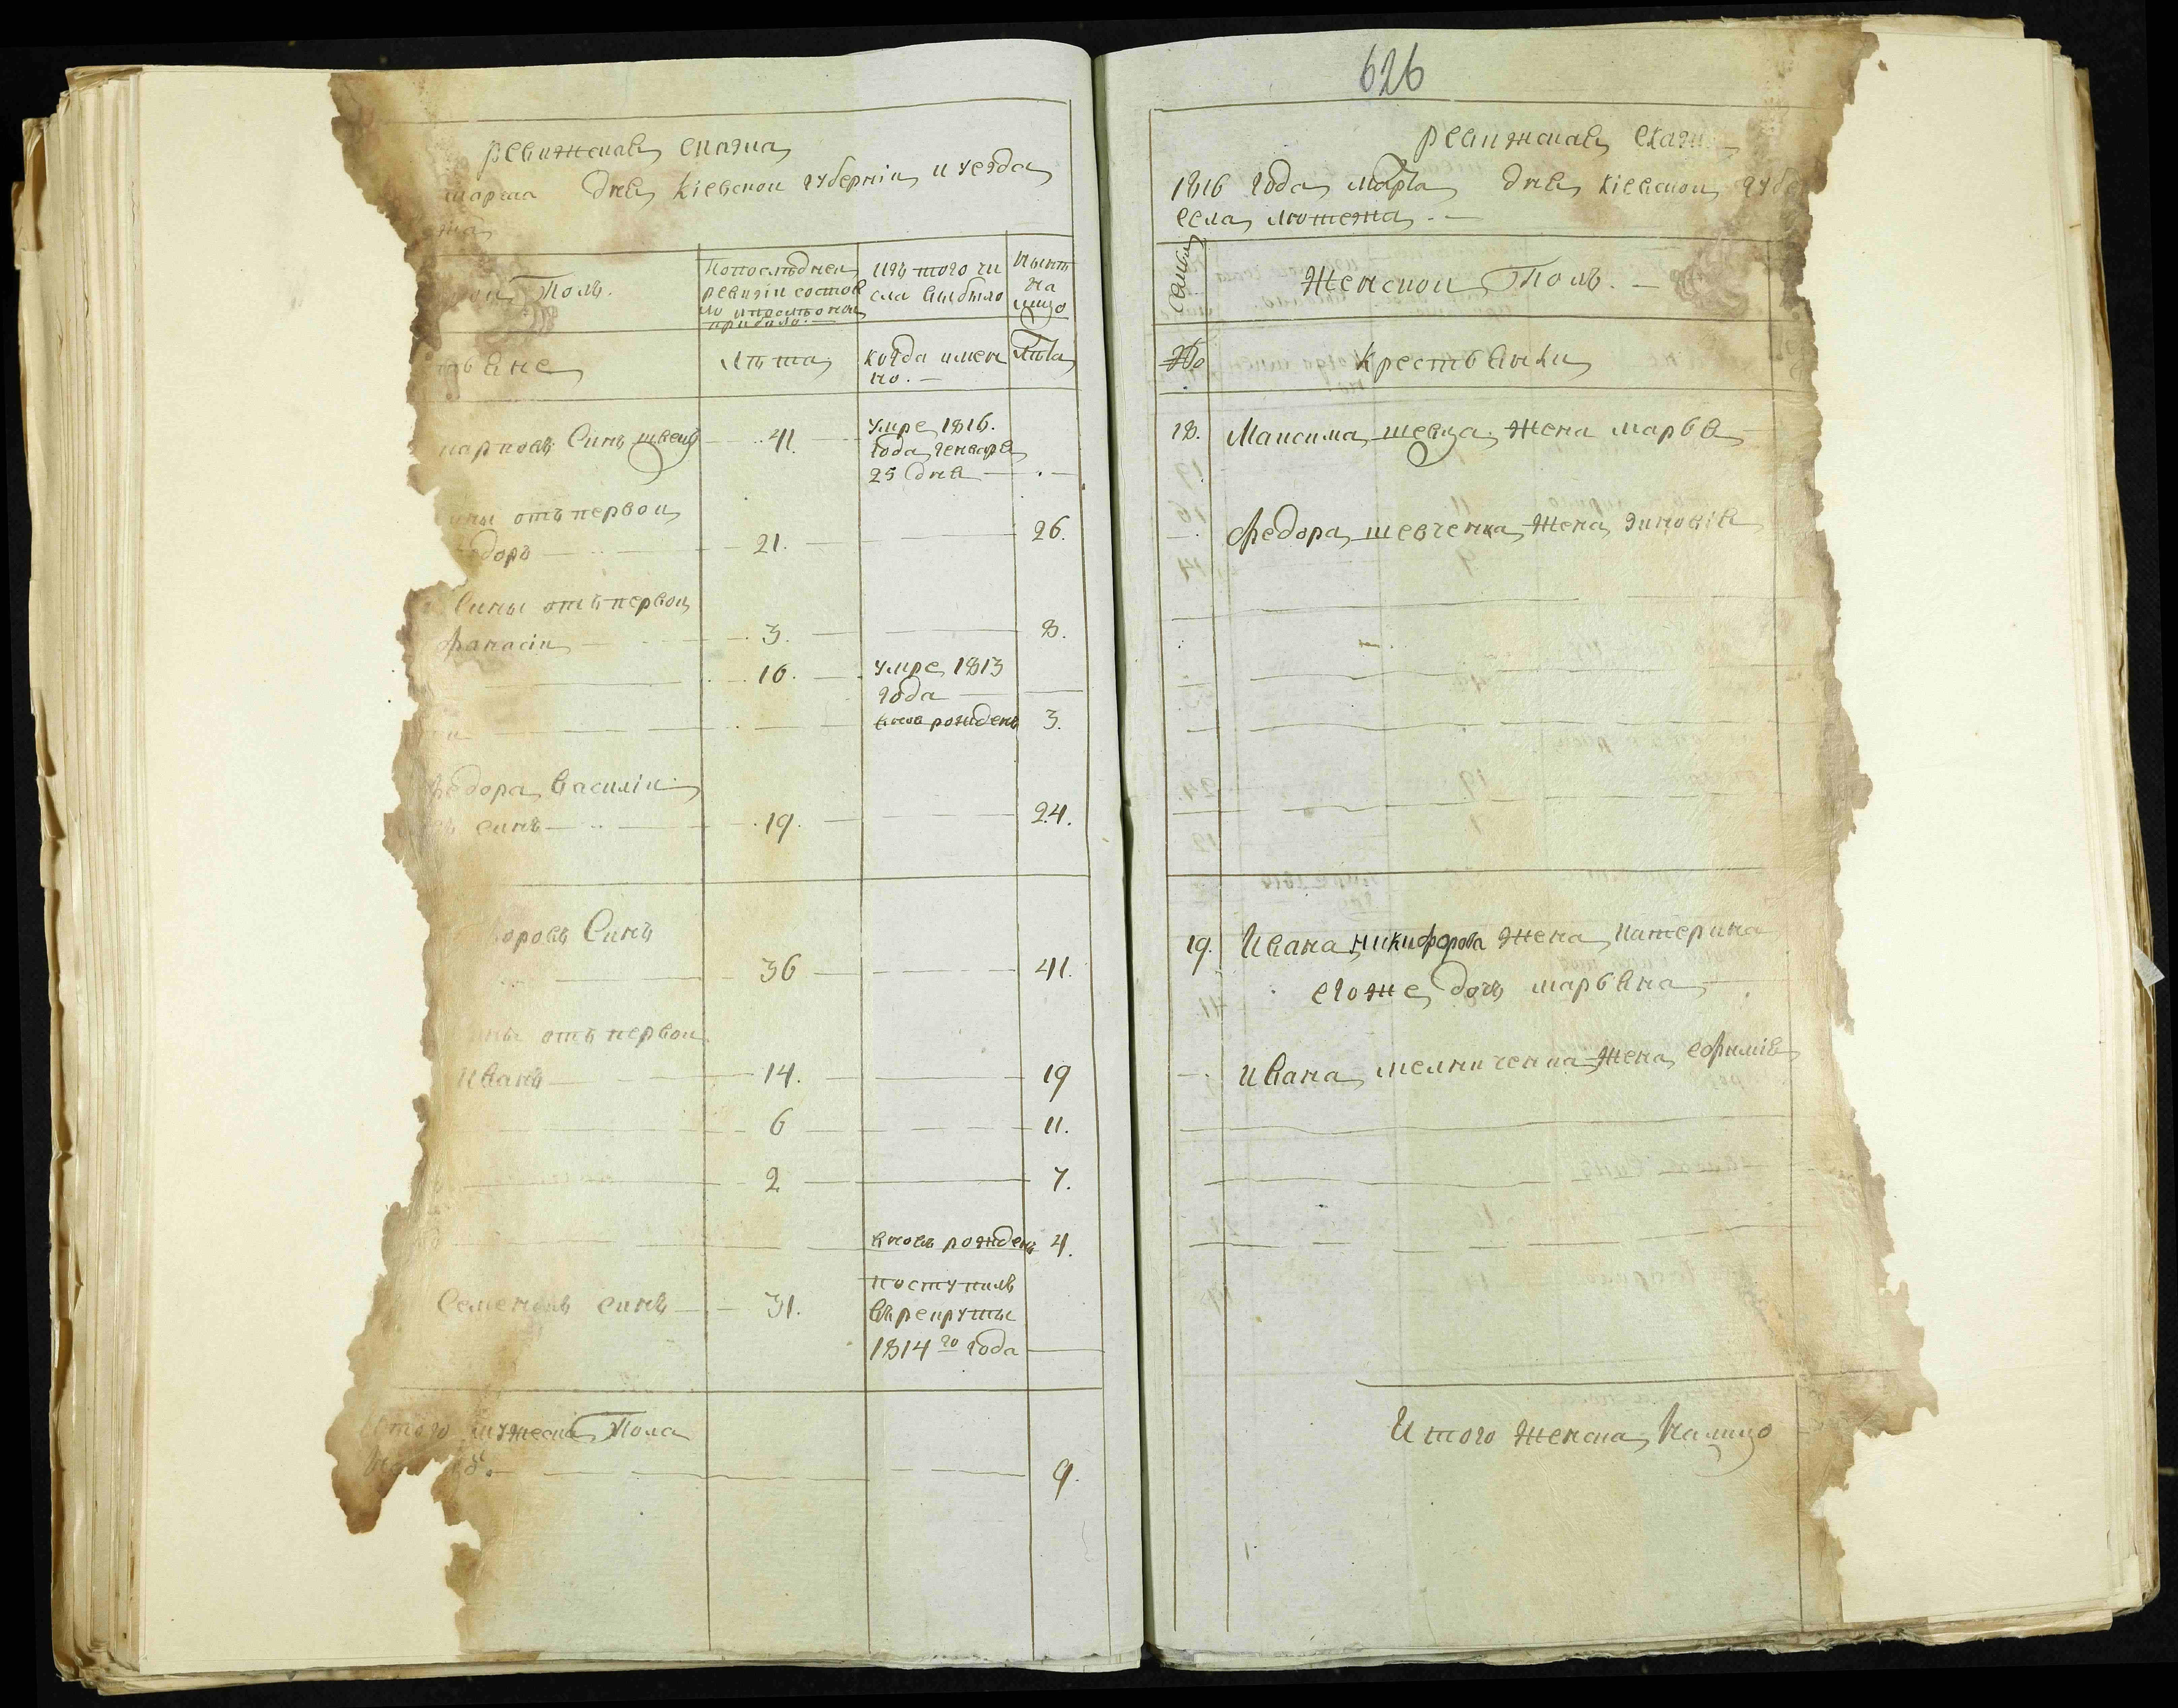 626
ревижская сказка
марта дня кіевскои губерніи и уезда
Полъ.
Попоследнеи ревизіи состоя
ло и после оной прибыло.
изъ того чи
сла выбыло
Ныне
на
лицо
лѣта
когда имен
но. —
Лѣта
марковъ Синъ швецъ — 41.
умре 1816.
года генваря
25 дня — . —
отъ первои
— 21. — — 26.
Сины отъ первои
фанасіи — 3. — — 8.
— 10. — умре 1813
года —
вновь рожденъ 3.
федора василіи
синъ — 19. — — 24.
Синъ
— 36 — — 41.
отъ первои
иванъ — 14. — — 19
— 6 — — 11.
— 2 — — 7.
вновь рожденъ 4.
Семеновъ синъ — 31.
поступилъ
въ рекруты
1814го года —
мужеска Пола
— 9.
ревижская
1816 года марта дня кіевскои
села лютежа. —
Семьи
Женскои Полъ. —
№
крестьянки
18. Максима швеца жена марья
— . федора шевченка жена зиновія
19. Ивана никифорова жена катерина
егоже дочь марьяна
— . ивана мелниченка жена ефимія
Итого женска налицо